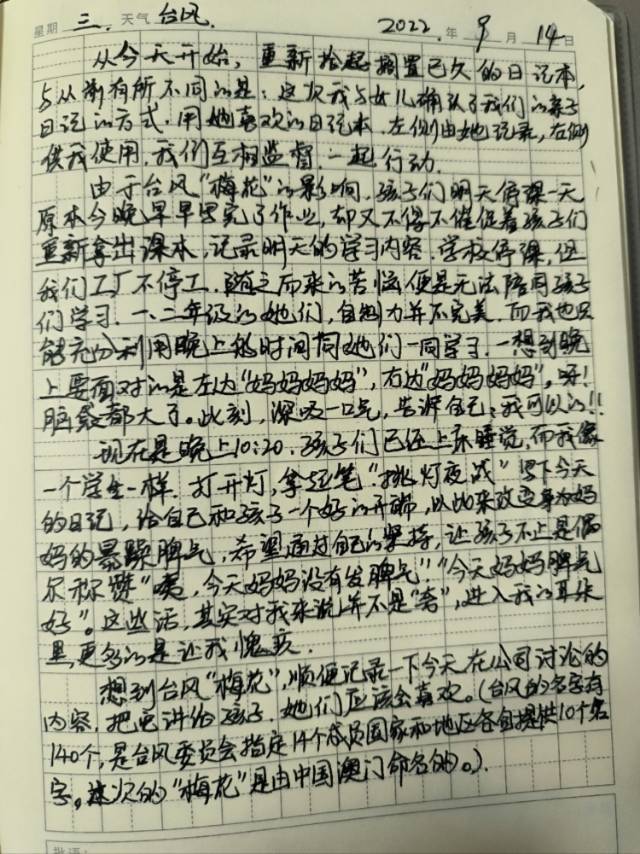 星期 三. 天气 台风. 2022.年 9 月 14 日
从今天开始，重新拾起搁置已久的日记本，
与从前有所不同的是：这次我与女儿确认了我们的亲子
日记的方式.用她喜欢的日记本.左侧由她记录，右侧
供我使用.我们互相监督.一起行动.
由于台风“梅花”的影响，孩子们明天停课一天
原本今晚早早写完了作业，却又不得不催促着孩子们
重新拿出课本，记录明天的学习内容.学校停课，但
我们工厂不停工.随之而来的苦恼便是无法陪同孩子
们学习.一、二年级的她们，自制力并不完美.而我也只
能充分利用晚上的时间同她们一同学习.一想到晚
上要面对的是左边“妈妈妈妈”，右边“妈妈妈妈”，呀！
脑袋都大了。此刻，深吸一口气，告诉自己：我可以的！！
现在是晚上10:20.孩子们已经上床睡觉，而我像
一个学生一样.打开灯，拿起笔“挑灯夜战”写下今天
的日记，给自己和孩子一个好的开端，以此来改变身为妈
妈的暴躁脾气，希望通过自己的坚持，让孩子不止是偶
尔称赞“噢，今天妈妈没有发脾气！”“今天妈妈脾气
好”。这些话，其实对我来说并不是“夸”，进入我的耳朵
里，更多的是让我愧疚.
想到台风“梅花”，顺便记录一下今天在公司讨论的
内容.把它讲给孩子.她们应该会喜欢。(台风的名字有
140个，是台风委员会指定14个成员国家和地区各自提供10个名
字。这次的“梅花”是由中国澳门命名的。).
批语：